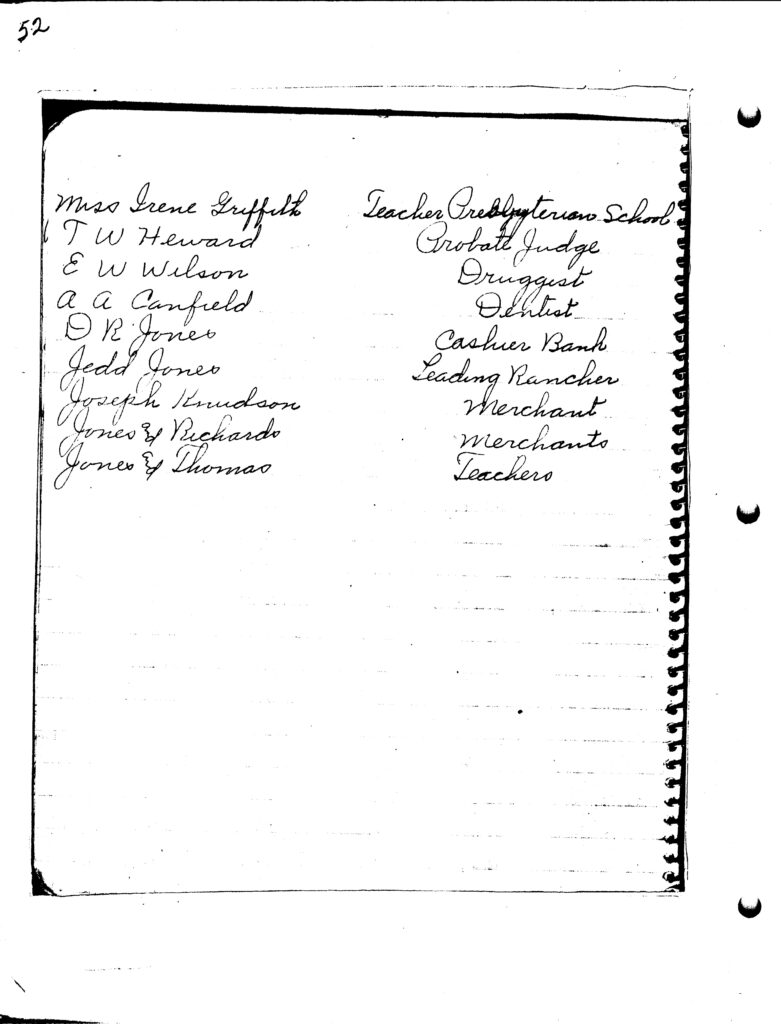 52
Miss Irene Griffith Teacher Presbyterian School
T W Heward Probate Judge
E W Wilson Druggist
A A Canfield Dentist
D R Jones Cashier Bank
Jedd Jones Leading Rancher
Joseph Knudson Merchant
Jones & Richards Merchants
Jones & Thomas Teachers